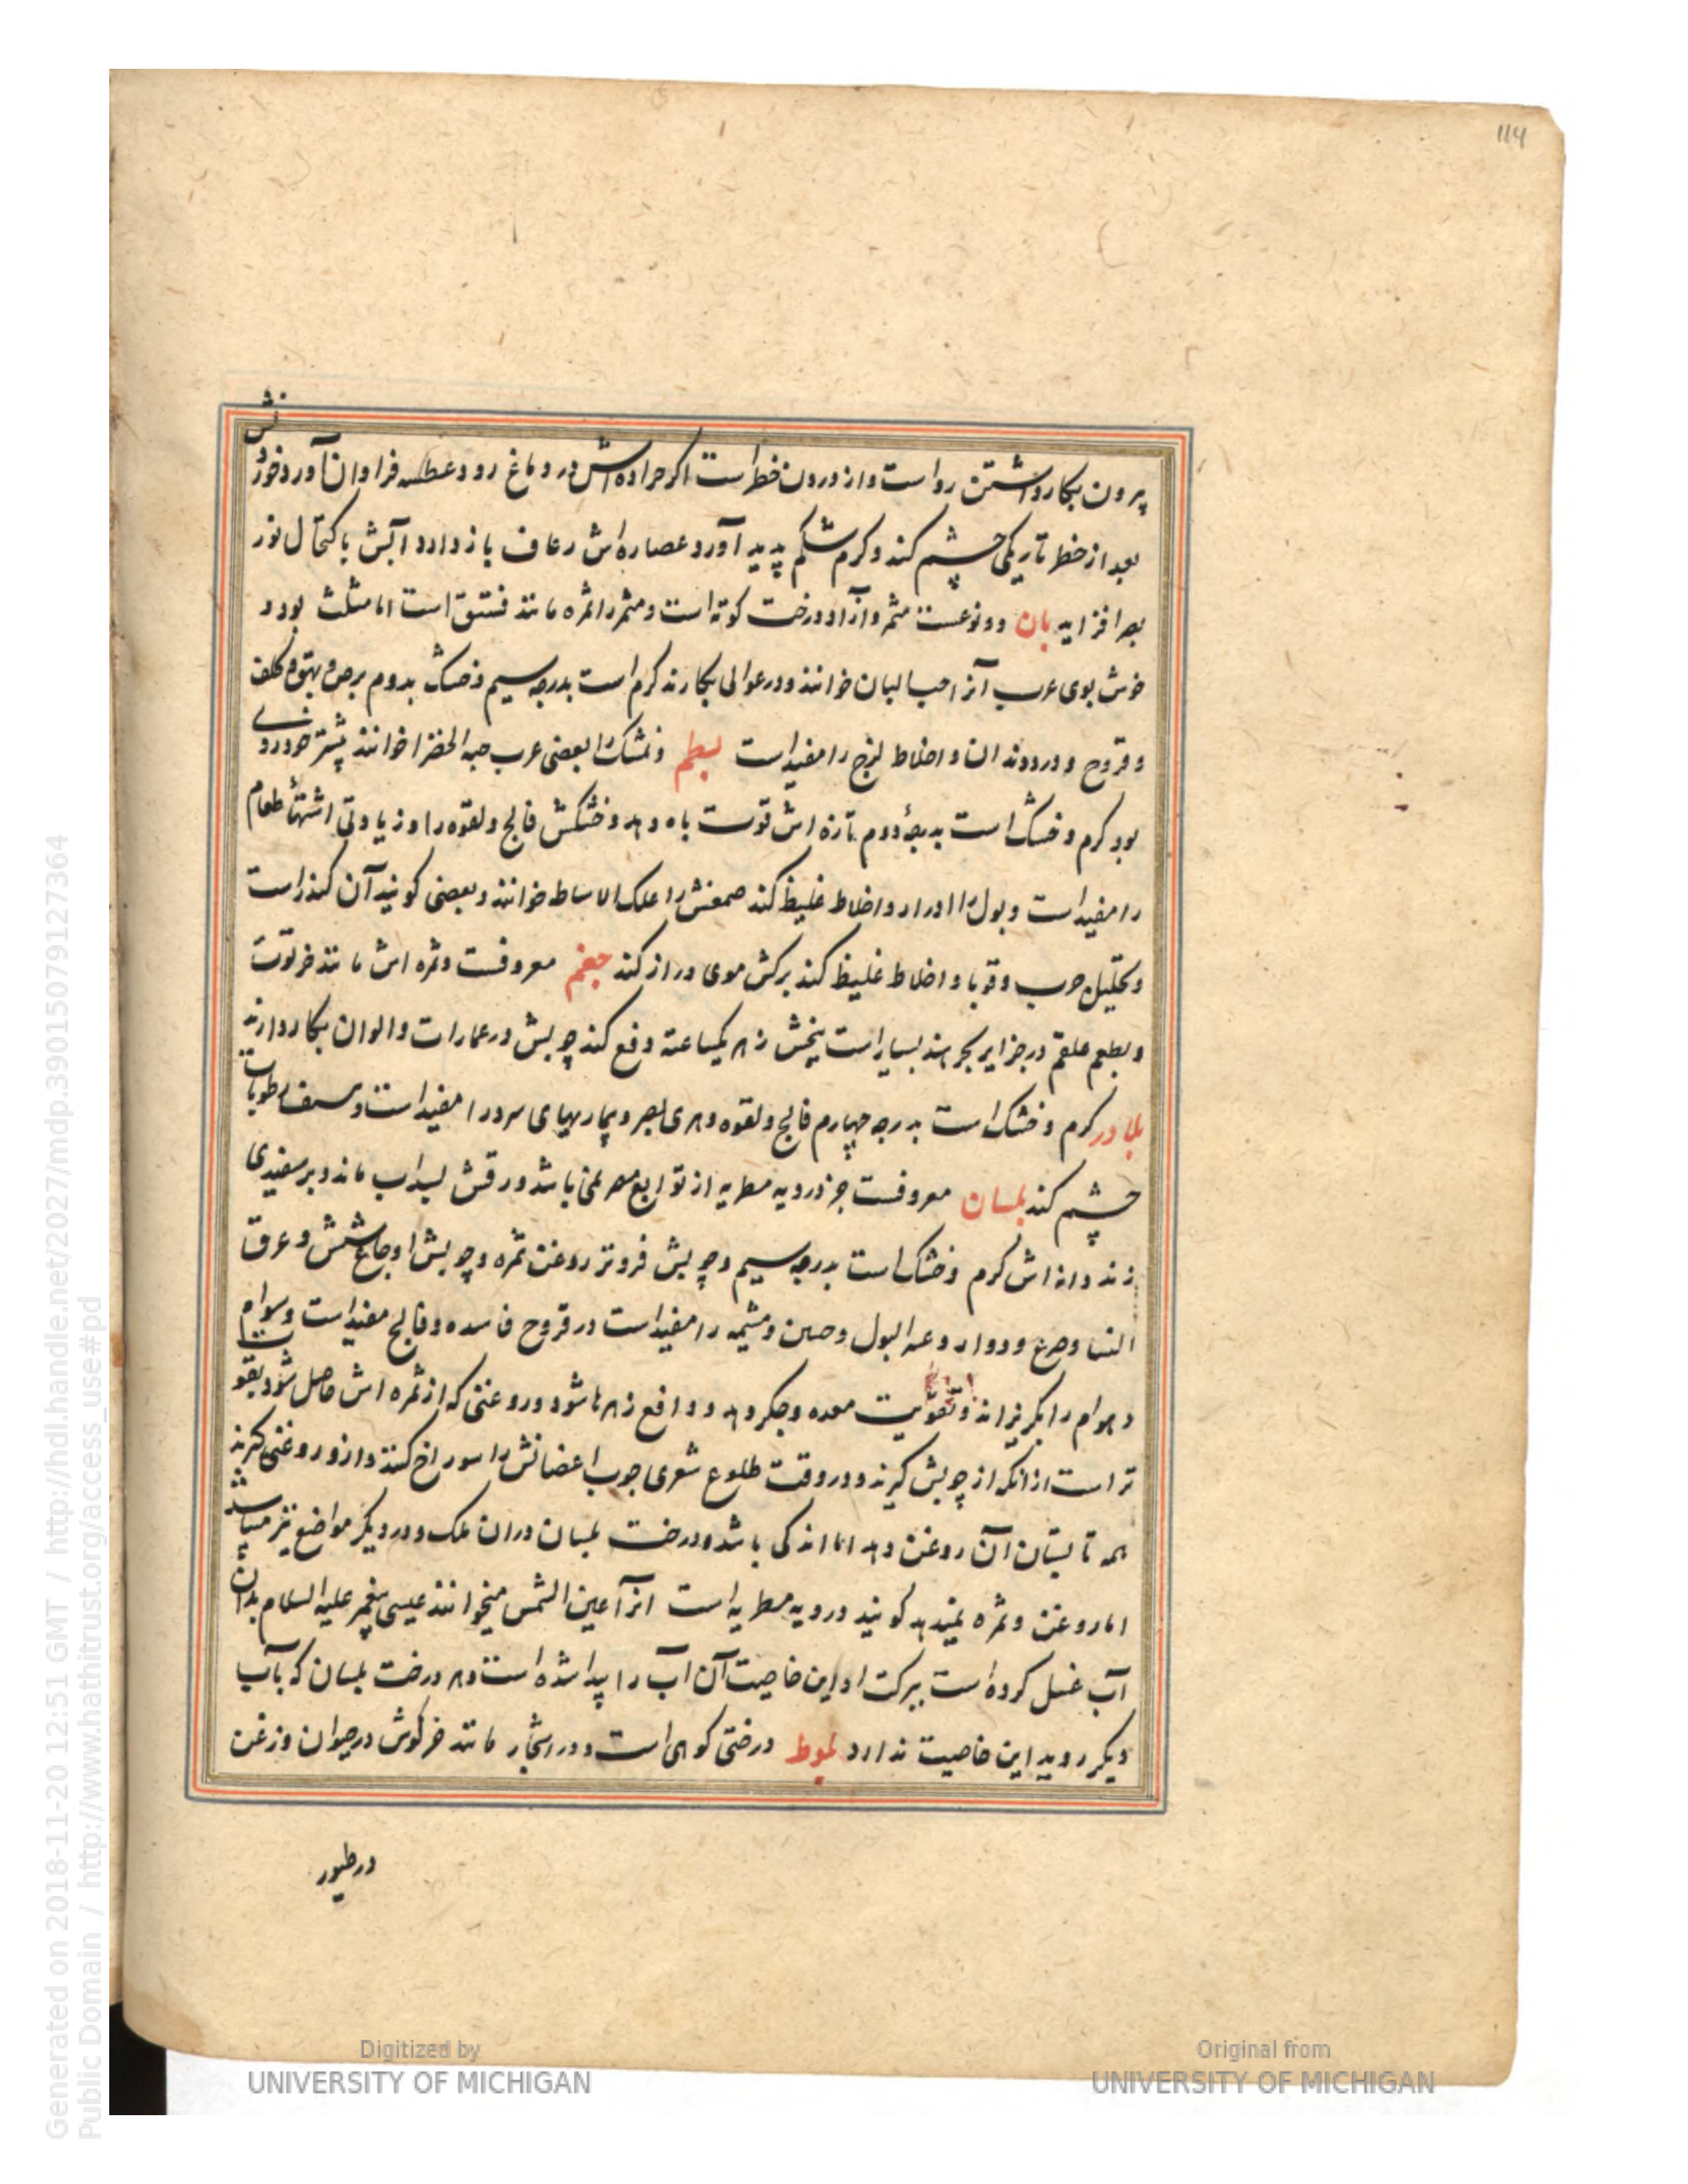 114
بیرون بکار داشتن رواست و از درون خطر است اکر جراده‌اش در دماغ رود عطسه فراوان آورد خوردنش
بعد از خطر تاریکی چشم کند و کرم شکم پدید آورد عصاره‌اش رعاف باز دارد آبش با کتحال نور
بصر افزاید بان دو نوعست مثمر و آزاد و درخت کوته است و مثمر را ثمره مانند فستق است اما مثلث بود و
خوش بوی عرب آنرا حب البان خوانند و در غوالی بکار برند کرم است بدرجه سیم و خشک بدوم برص و بهق و کلف
و قروح و درد دندان و اخلاط لزج را مفید است بطم ونمشک را بعضی عرب حبه الخضرا خوانند پیشتر خودروی
بود کرم و خشک است بدرجهٔ دوم تازه اش قوت باه دهد و خشکش فالج و لقوه را و زیادتی اشتهاء طعام
را مفید است و بول را ادرار و اخلاط غلیظ کند صمغش را علک الاساط خوانند و بعضی کویند آن کندر است
و تحلیل جرب و قوبا و اخلاط غلیظ کند برکش موی دراز کند جغم معروفست و ثمره اش مانند خرتوت
و بطعم علقم در جزایر بحر هند بسیار است بیخش زهر یکساعته دفع کند چوبش در عمارات و الوان بکار دارند
بلادر کرم و خشک است بدرجه چهارم فالج و لقوه و بیماریهای سرد را مفید است و رطوبات
چشم کند بلسان معروفست جز در دیه مطریه از توابع مصر نمی باشد ورقش بسداب ماند و بر سفیدی
زند دانه اش کرم و خشک است بدرجه سیم و چوبش فروتر روغن ثمره و چوبش اوجاع شش و عرق
النسا و صرع و دوار و عسر البول و جنین و مشیمه را مفید است در قروح فاسده و فالج مفید است و سوام
و هوام را بکریزاند و تقویت معده و جکر دهد و دافع زهرها شود و روغنی که از ثمره اش حاصل شود بقوت
تر است از آنکه از چوبش کیرند و در وقت طلوع شعری جوب اعضانش را سوراخ کنند و ازو روغنی کیرند
همه تابستان آن روغن دهد اما اندکی باشد و درخت بلسان دران ملک و در دیکر مواضع نیز میباشد
اما روغن و ثمره نمیدهد کویند در دیه مطریه است انرا عین الشمس میخوانند عیسی پیغمبر علیه السلام بدان
آب غسل کرده است ببرکت او این خاصیت آن آب را پیدا شده است و هر درخت بلسان که بآب
دیکر روید این خاصیت ندارد بلوط درختی کوهی است و در اشجار مانند خرکوش در حیوان و زغن
در طیور
Generated on 2018-11-20 12:51 GMT / http://hdl.handle.net/2027/mdp.39015079127364
Public Domain / http://www.hathitrust.org/access_use#pd
Digitized by
UNIVERSITY OF MICHIGAN
Original from
UNIVERSITY OF MICHIGAN